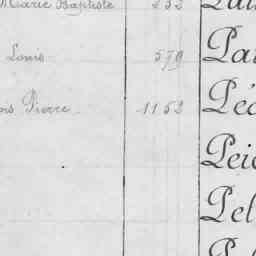 Marie Baptiste 252
Louis 579 Pa
Pierre 1152 Péc
Peic
Pel